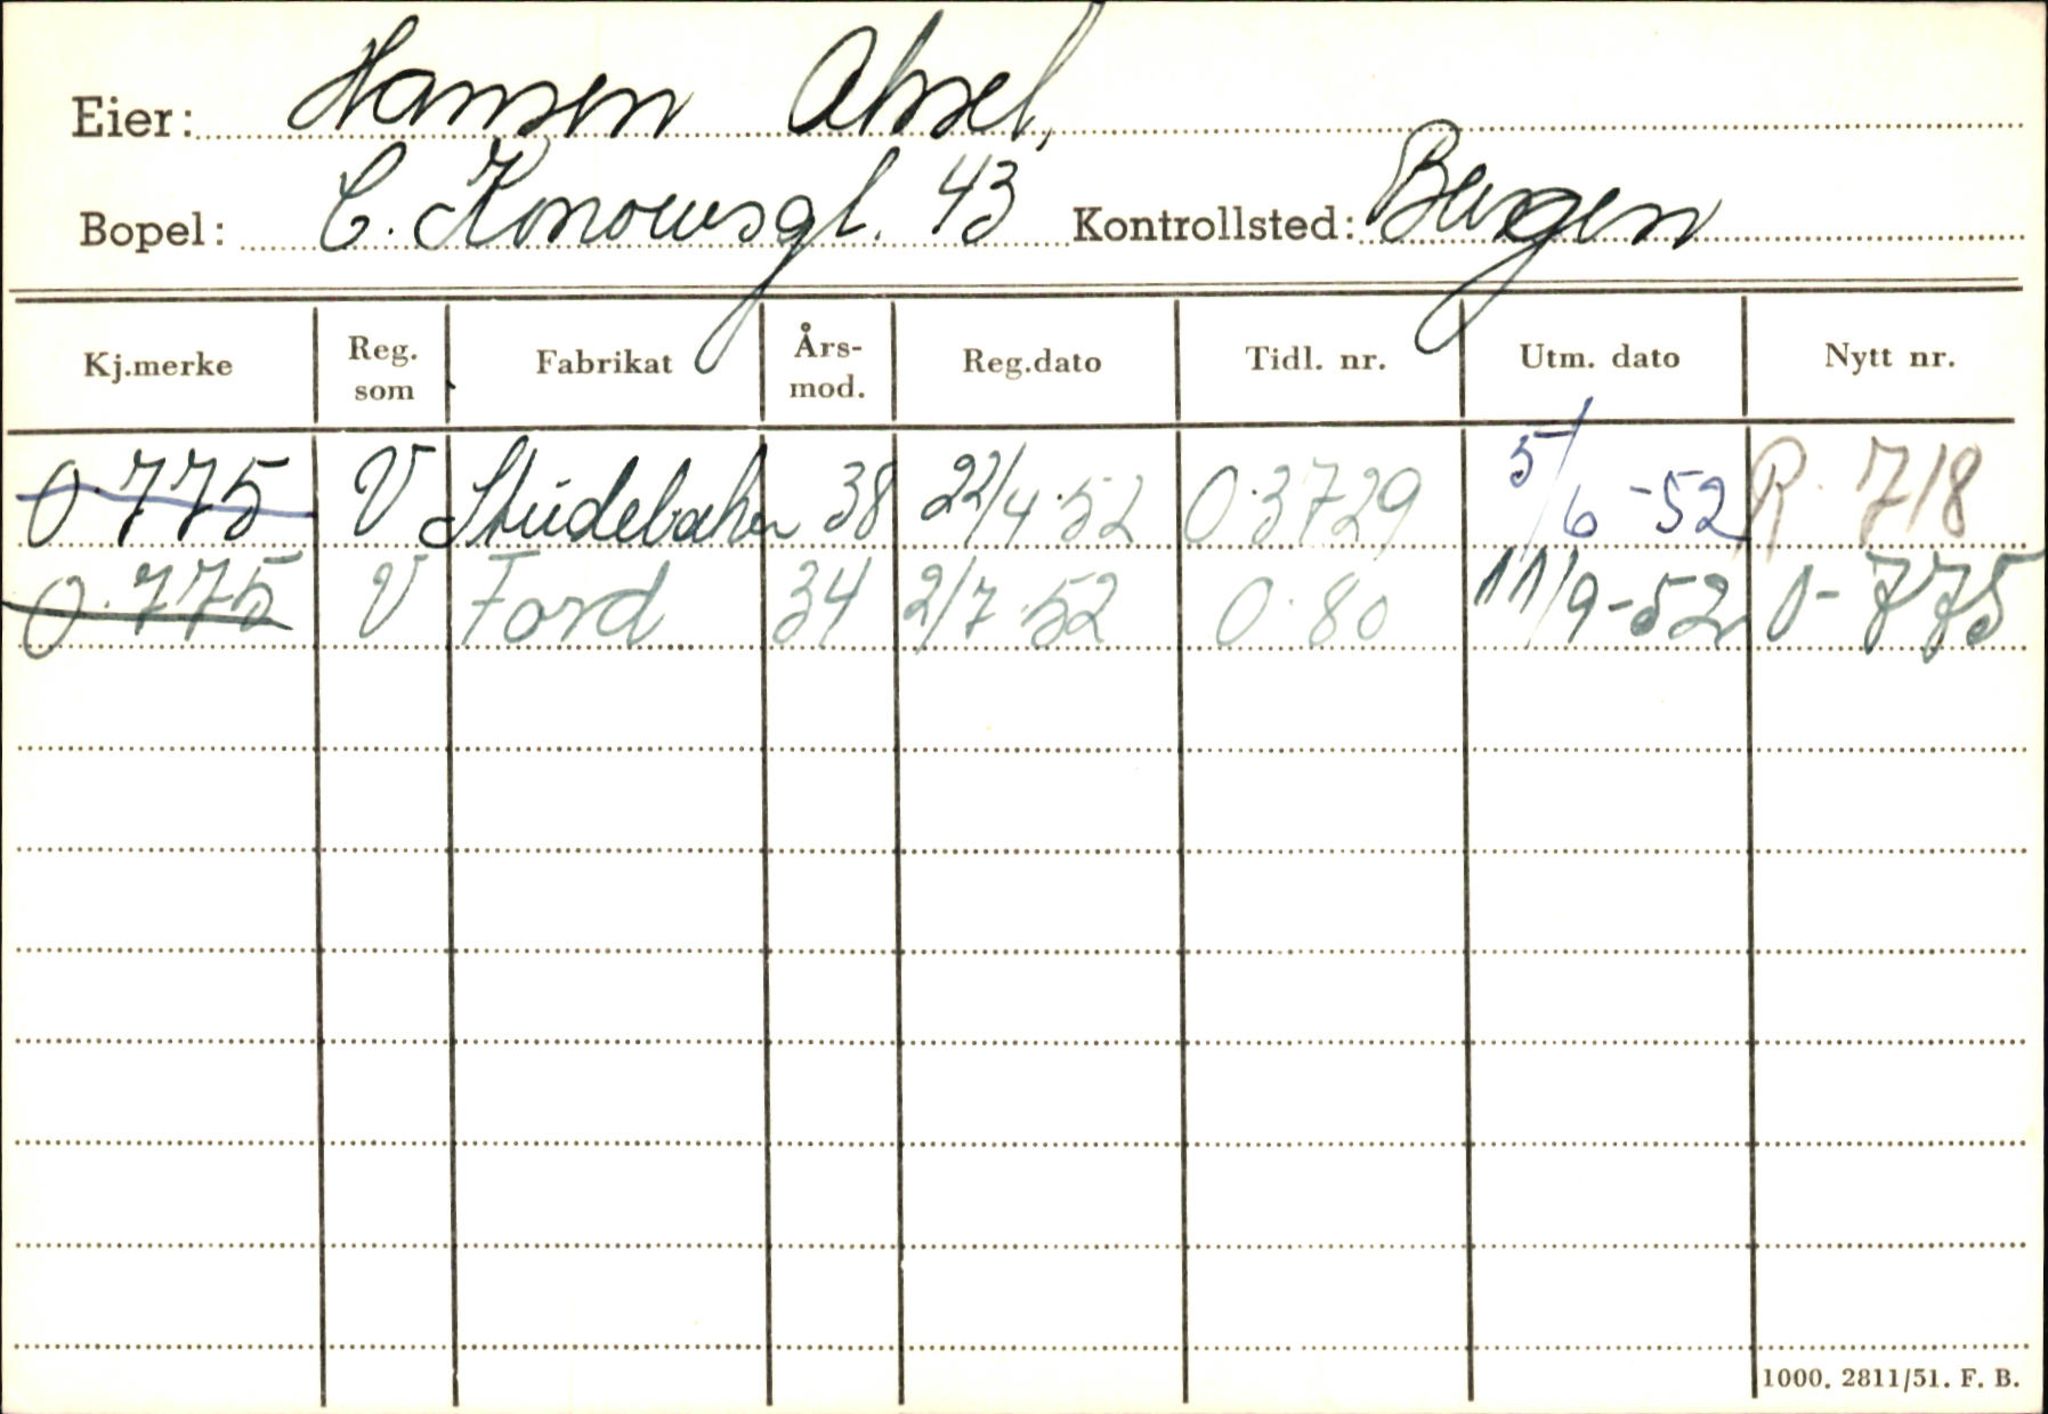 Eier: Hansen Aksel,
Bopel: C. Konowsgt. 43 Kontrollsted: Bergen
Kj.merke Reg. som Fabrikat Års-mod. Reg.dato Tidl. nr. Utm. dato Nytt nr.
O.775 V Studebaker 38 22/4.52 O.3729 5/6-52 R.718
O.775 V Ford 34 2/7.52 O.80 11/9-52 O-775
1000. 2811/51. F. B.